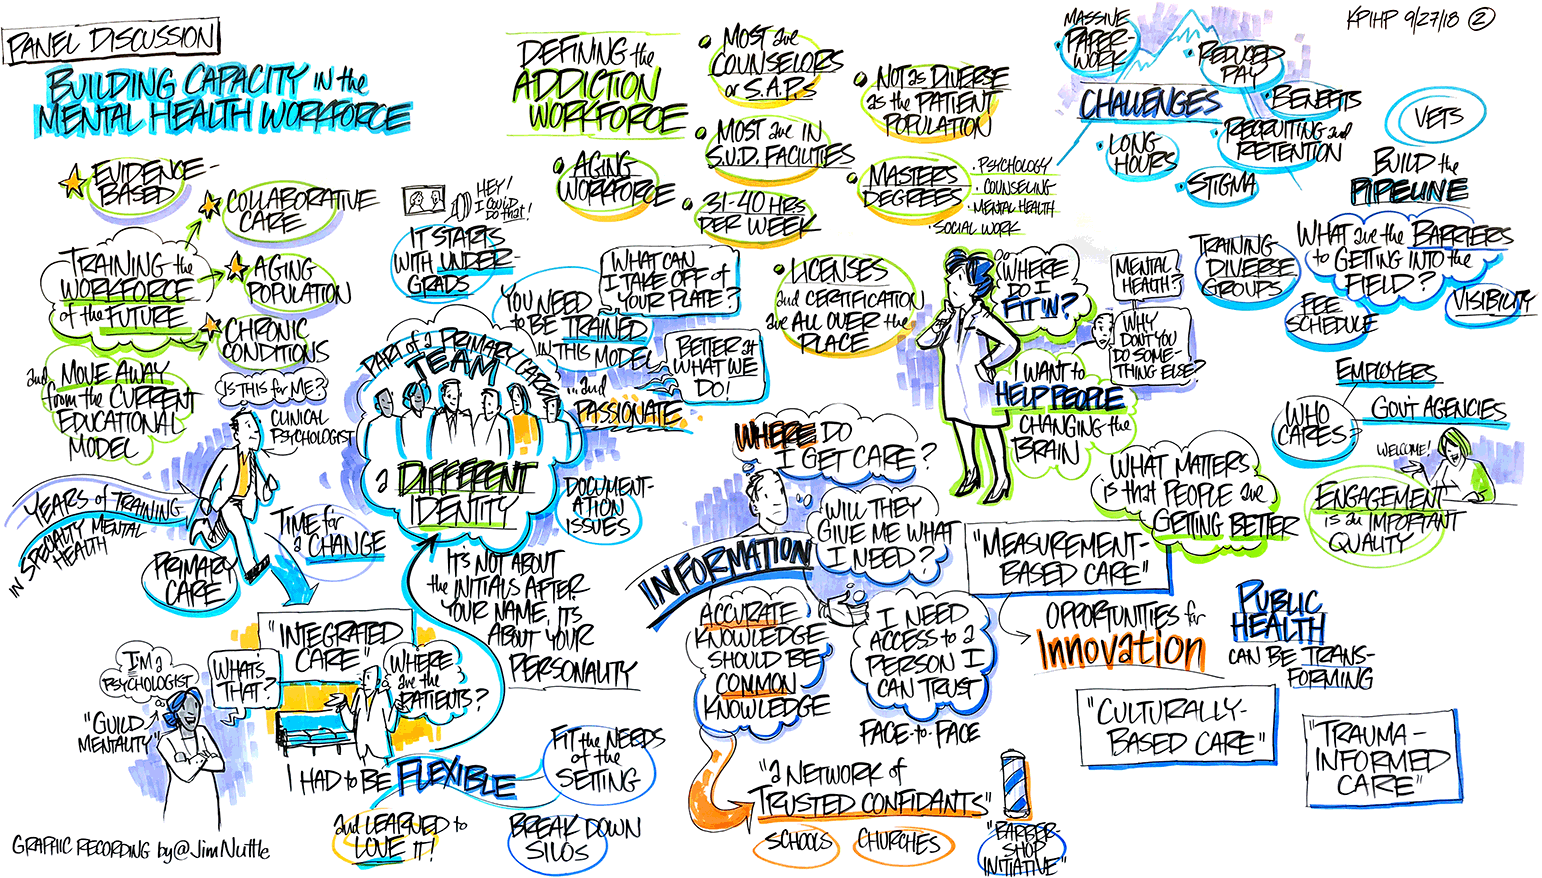 PANEL DISCUSSION
BUILDING CAPACITY in the
MENTAL HEALTH WORKFORCE
EVIDENCE-
BASED
COLLABORATIVE
CARE
TRAINING the
WORKFORCE
of the FUTURE
AGING
POPULATION
CHRONIC
CONDITIONS
and MOVE AWAY
from the CURRENT
EDUCATIONAL
MODEL
IS THIS for ME?
CLINICAL
PSYCHOLOGIST
YEARS of TRAINING
IN SPECIALTY MENTAL
HEALTH
PRIMARY
CARE
TIME for
a CHANGE
"INTEGRATED
CARE"
I'M a
PSYCHOLOGIST
"GUILD
MENTALITY"
WHAT'S
THAT?
WHERE
are the
PATIENTS?
I HAD to BE FLEXIBLE
and LEARNED to
LOVE IT!
FIT the NEEDS
of the
SETTING
BREAK DOWN
SILOS
GRAPHIC RECORDING by @JimNuttle
HEY!
I COULD
DO that!
IT STARTS
WITH UNDER-
GRADS
YOU NEED
to BE TRAINED
IN THIS MODEL
WHAT CAN
I TAKE OFF of
YOUR PLATE?
BETTER at
WHAT WE
DO!
...and
PASSIONATE
PART of a PRIMARY CARE
TEAM
a DIFFERENT
IDENTITY
DOCUMENT-
ATION
ISSUES
IT'S NOT ABOUT
the INITIALS AFTER
YOUR NAME, IT'S
ABOUT YOUR
PERSONALITY
DEFINING the
ADDICTION
WORKFORCE
AGING
WORKFORCE
MOST are
COUNSELORS
or S.A.P.s
MOST are IN
S.U.D. FACILITIES
31-40 HRS
PER WEEK
NOT as DIVERSE
as the PATIENT
POPULATION
MASTERS
DEGREES
• PSYCHOLOGY
• COUNSELING
• MENTAL HEALTH
• SOCIAL WORK
LICENSES
and CERTIFICATION
are ALL OVER the
PLACE
WHERE
DO I
FIT IN?
MENTAL
HEALTH?
WHY
DON'T YOU
DO SOME-
THING ELSE?
I WANT to
HELP PEOPLE
CHANGING the
BRAIN
WHERE DO
I GET CARE?
WILL THEY
GIVE ME WHAT
I NEED?
INFORMATION
ACCURATE
KNOWLEDGE
SHOULD BE
COMMON
KNOWLEDGE
I NEED
ACCESS to a
PERSON I
CAN TRUST
FACE-to-FACE
"a NETWORK of
TRUSTED CONFIDANTS"
SCHOOLS
CHURCHES
"BARBER-
SHOP
INITIATIVE"
KPIHP 9/27/18 2
CHALLENGES
MASSIVE
PAPER-
WORK
REDUCED
PAY
BENEFITS
RECRUITING and
RETENTION
LONG
HOURS
STIGMA
VETS
BUILD the
PIPELINE
TRAINING
DIVERSE
GROUPS
WHAT are the BARRIERS
to GETTING INTO the
FIELD?
FEE
SCHEDULE
VISIBILITY
WHO
CARES?
EMPLOYERS
GOV'T AGENCIES
WELCOME!
ENGAGEMENT
is an IMPORTANT
QUALITY
WHAT MATTERS
is that PEOPLE are
GETTING BETTER
"MEASUREMENT-
BASED CARE"
OPPORTUNITIES for
INNOVATION
PUBLIC
HEALTH
CAN BE TRANS-
FORMING
"CULTURALLY-
BASED CARE"
"TRAUMA-
INFORMED
CARE"